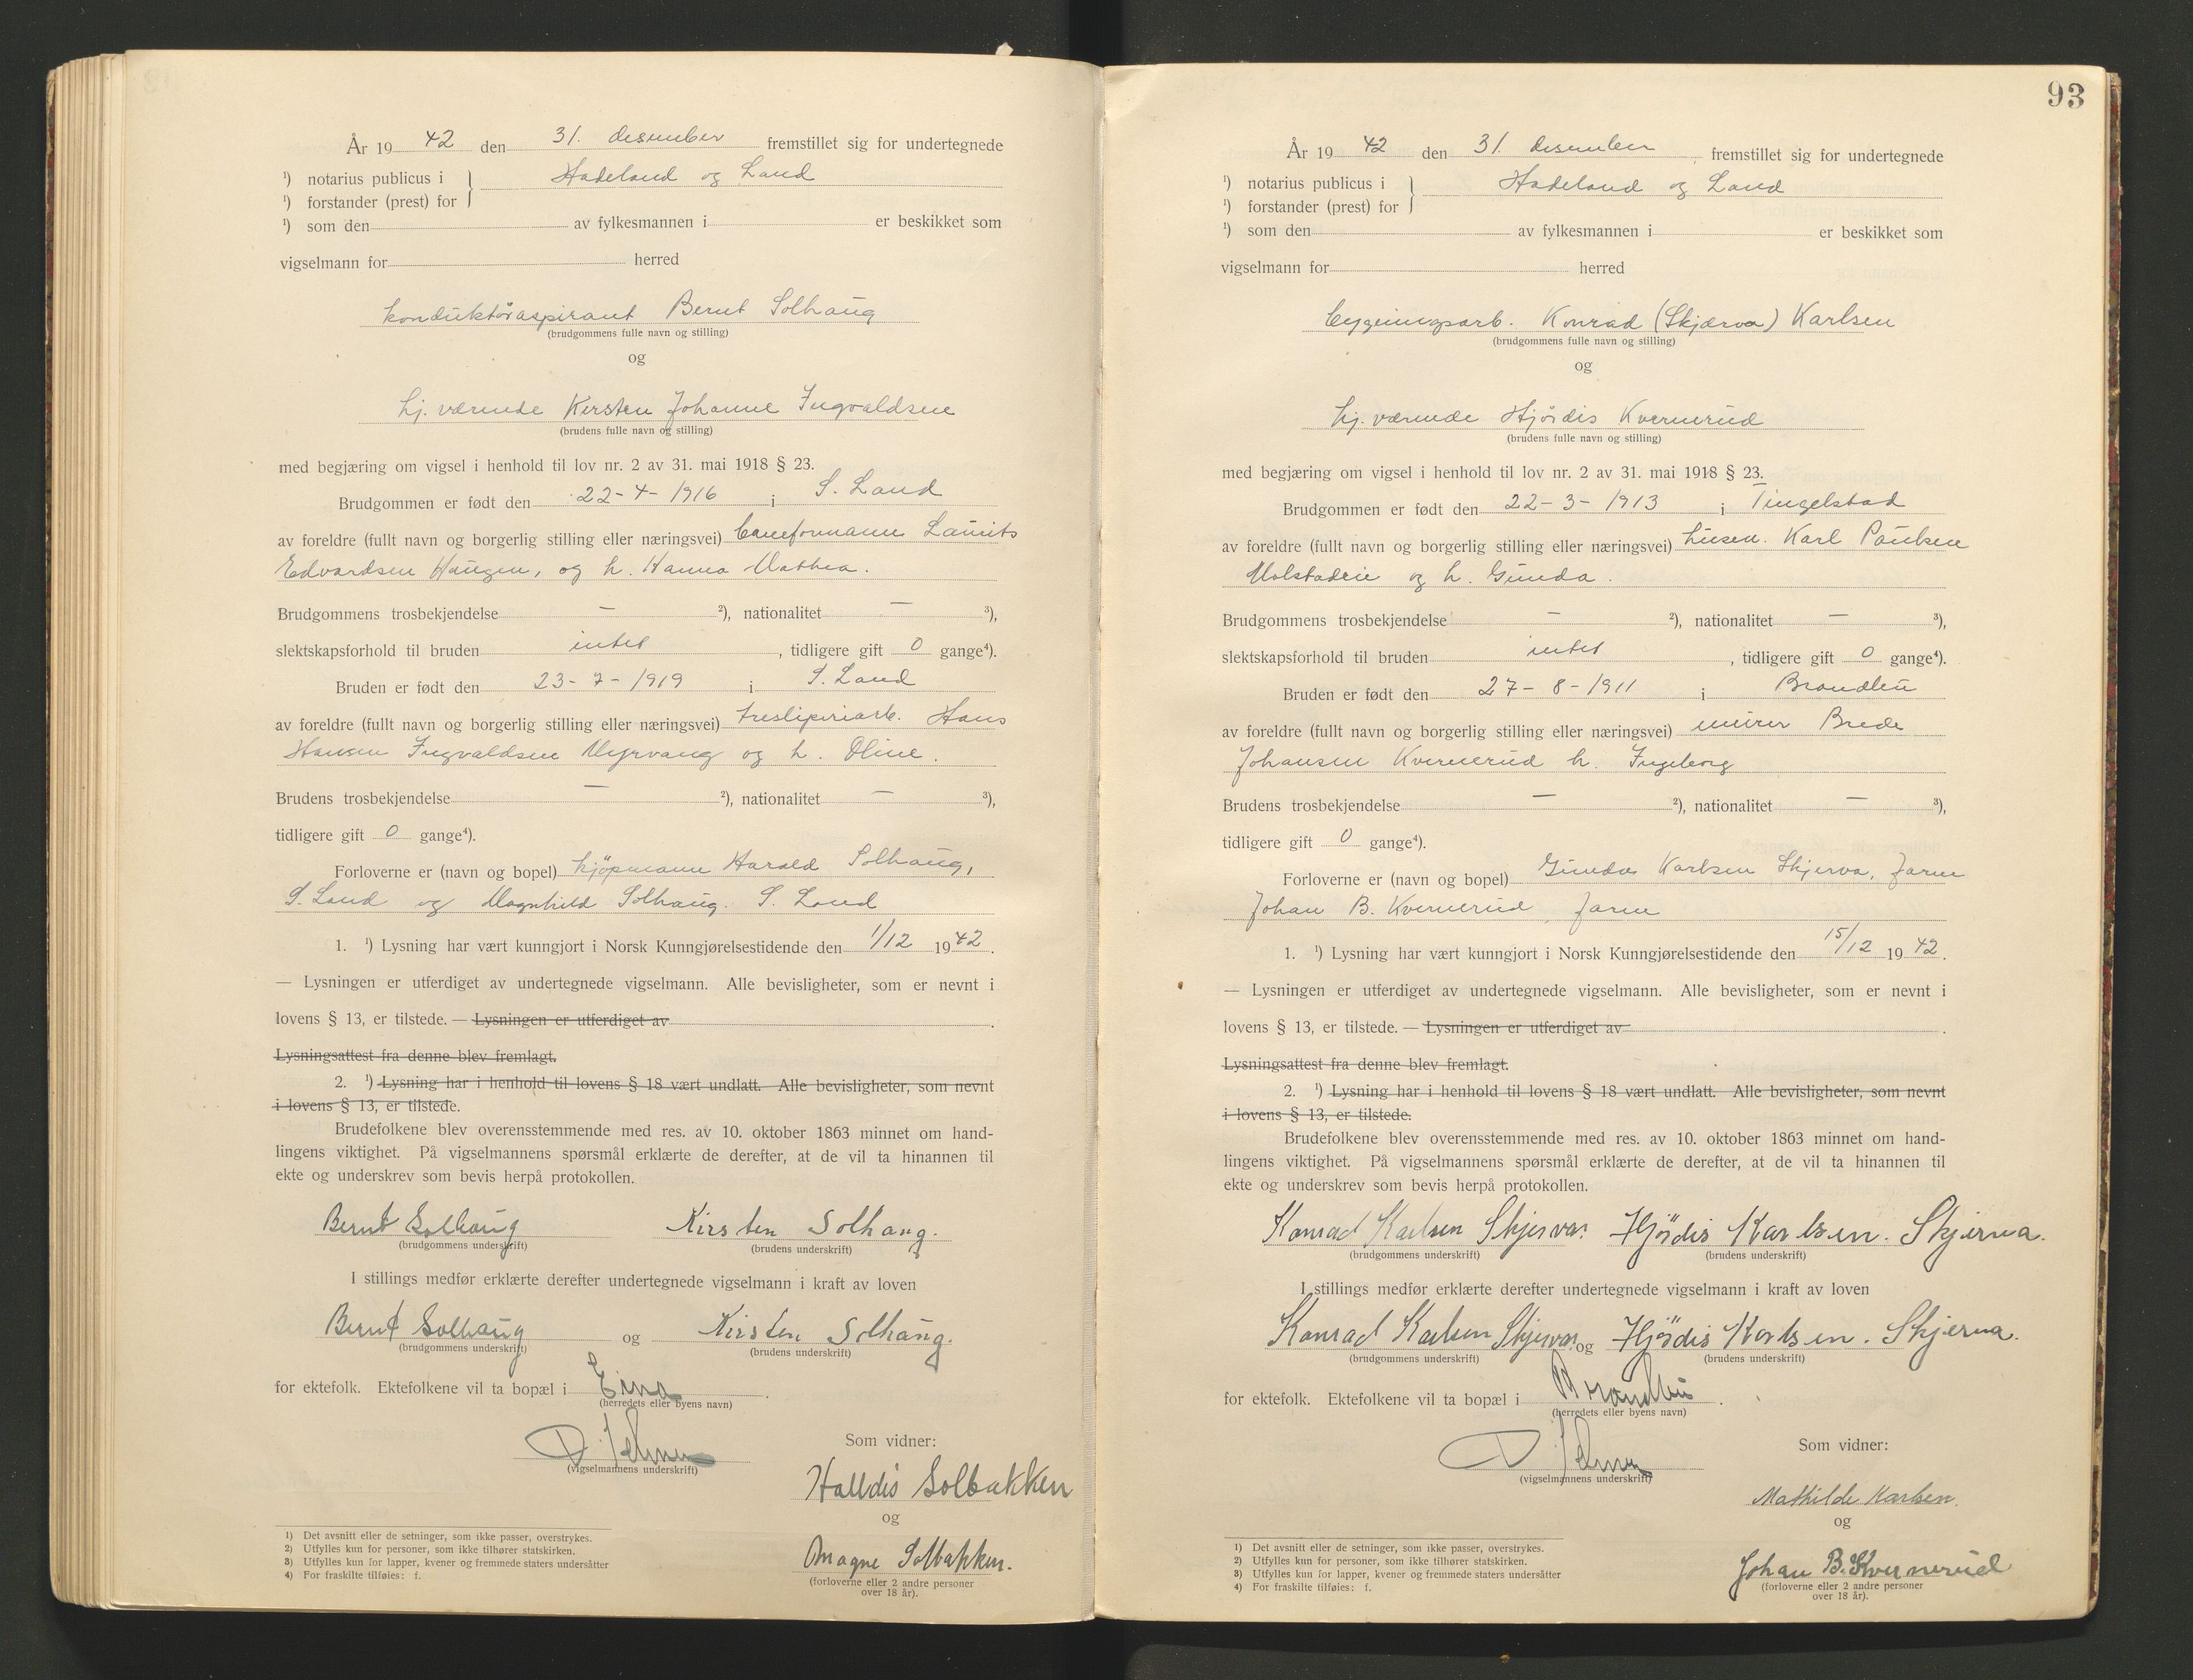 År 19 42 den 31. desember fremstillet sig for undertegnede
¹) notarius publicus i } Hadeland og Land
¹) forstander (prest) for
¹) som den av fylkesmannen i er beskikket som
vigselmann for herred
konduktøraspirant Bernt Solhaug
(brudgommens fulle navn og stilling)
og
hj. værende Kirsten Johanne Ingvaldsen
(brudens fulle navn og stilling)
med begjæring om vigsel i henhold til lov nr. 2 av 31. mai 1918 § 23.
Brudgommen er født den 22-4-1916 i S. Land
av foreldre (fullt navn og borgerlig stilling eller næringsvei) baneformann Laurits
Edvardsen Haugen, og h. Hanna Mathea.
Brudgommens trosbekjendelse — ²), nationalitet — ³),
slektskapsforhold til bruden intet , tidligere gift 0 gange⁴).
Bruden er født den 23-7-1919 i S. Land
av foreldre (fullt navn og borgerlig stilling eller næringsvei) tresliperiarb. Hans
Hansen Ingvaldsen Myrvang og h. Oline.
Brudens trosbekjendelse — ²), nationalitet — ³),
tidligere gift 0 gange⁴).
Forloverne er (navn og bopel) kjöpmann Harald Solhaug,
S. Land og Magnhild Solhaug. S. Land
1. ¹) Lysning har vært kunngjort i Norsk Kunngjørelsestidende den 1/12 1942.
— Lysningen er utferdiget av undertegnede vigselmann. Alle bevisligheter, som er nevnt i
lovens § 13, er tilstede. — Lysningen er utferdiget av .
Lysningsattest fra denne blev fremlagt.
2. ¹) Lysning har i henhold til lovens § 18 vært undlatt. Alle bevisligheter, som nevnt
i lovens § 13, er tilstede.
Brudefolkene blev overensstemmende med res. av 10. oktober 1863 minnet om hand-
lingens viktighet. På vigselmannens spørsmål erklærte de derefter, at de vil ta hinannen til
ekte og underskrev som bevis herpå protokollen.
Bernt Solhaug Kirsten Solhaug.
(brudgommens underskrift) (brudens underskrift)
I stillings medfør erklærte derefter undertegnede vigselmann i kraft av loven
Bernt Solhaug og Kirsten Solhaug.
(brudgommens underskrift) (brudens underskrift)
for ektefolk. Ektefolkene vil ta bopæl i Eina .
(herredets eller byens navn)
(vigselmannens underskrift)
Som vidner:
Halldis Solbakken
og
Magne Solbakken.
(forloverne eller 2 andre personer
over 18 år).
1) Det avsnitt eller de setninger, som ikke passer, overstrykes.
2) Utfylles kun for personer, som ikke tilhører statskirken.
3) Utfylles kun for lapper, kvener og fremmede staters undersåtter
4) For fraskilte tilføies: f.
93
År 19 42 den 31. desember, fremstillet sig for undertegnede
¹) notarius publicus i } Hadeland og Land
¹) forstander (prest) for
¹) som den av fylkesmannen i er beskikket som
vigselmann for herred
bygningsarb. Konrad (Skjærva) Karlsen
(brudgommens fulle navn og stilling)
og
hj. værende Hjördis Kvernerud
(brudens fulle navn og stilling)
med begjæring om vigsel i henhold til lov nr. 2 av 31. mai 1918 § 23.
Brudgommen er født den 22-3-1913 i Tingelstad
av foreldre (fullt navn og borgerlig stilling eller næringsvei) husm. Karl Paulsen
Molstadeie og h. Gunda.
Brudgommens trosbekjendelse — ²), nationalitet — ³),
slektskapsforhold til bruden intet , tidligere gift 0 gange⁴).
Bruden er født den 27-8-1911 i Brandbu
av foreldre (fullt navn og borgerlig stilling eller næringsvei) murer Brede
Johansen Kvernerud h. Ingeborg
Brudens trosbekjendelse — ²), nationalitet — ³),
tidligere gift 0 gange⁴).
Forloverne er (navn og bopel) Gunda Karlsen Skjerva, Jaren
Johan B. Kvernerud, Jaren
1. ¹) Lysning har vært kunngjort i Norsk Kunngjørelsestidende den 15/12 1942.
— Lysningen er utferdiget av undertegnede vigselmann. Alle bevisligheter, som er nevnt i
lovens § 13, er tilstede. — Lysningen er utferdiget av .
Lysningsattest fra denne blev fremlagt.
2. ¹) Lysning har i henhold til lovens § 18 vært undlatt. Alle bevisligheter, som nevnt
i lovens § 13, er tilstede.
Brudefolkene blev overensstemmende med res. av 10. oktober 1863 minnet om hand-
lingens viktighet. På vigselmannens spørsmål erklærte de derefter, at de vil ta hinannen til
ekte og underskrev som bevis herpå protokollen.
Konrad Karlsen Skjerva. Hjördis Karlsen. Skjerva.
(brudgommens underskrift) (brudens underskrift)
I stillings medfør erklærte derefter undertegnede vigselmann i kraft av loven
Konrad Karlsen Skjerva. og Hjördis Karlsen. Skjerva.
(brudgommens underskrift) (brudens underskrift)
for ektefolk. Ektefolkene vil ta bopæl i Brandbu .
(herredets eller byens navn)
(vigselmannens underskrift)
Som vidner:
Mathilde Karlsen.
og
Johan B. Kvernerud
(forloverne eller 2 andre personer
over 18 år).
1) Det avsnitt eller de setninger, som ikke passer, overstrykes.
2) Utfylles kun for personer, som ikke tilhører statskirken.
3) Utfylles kun for lapper, kvener og fremmede staters undersåtter
4) For fraskilte tilføies: f.